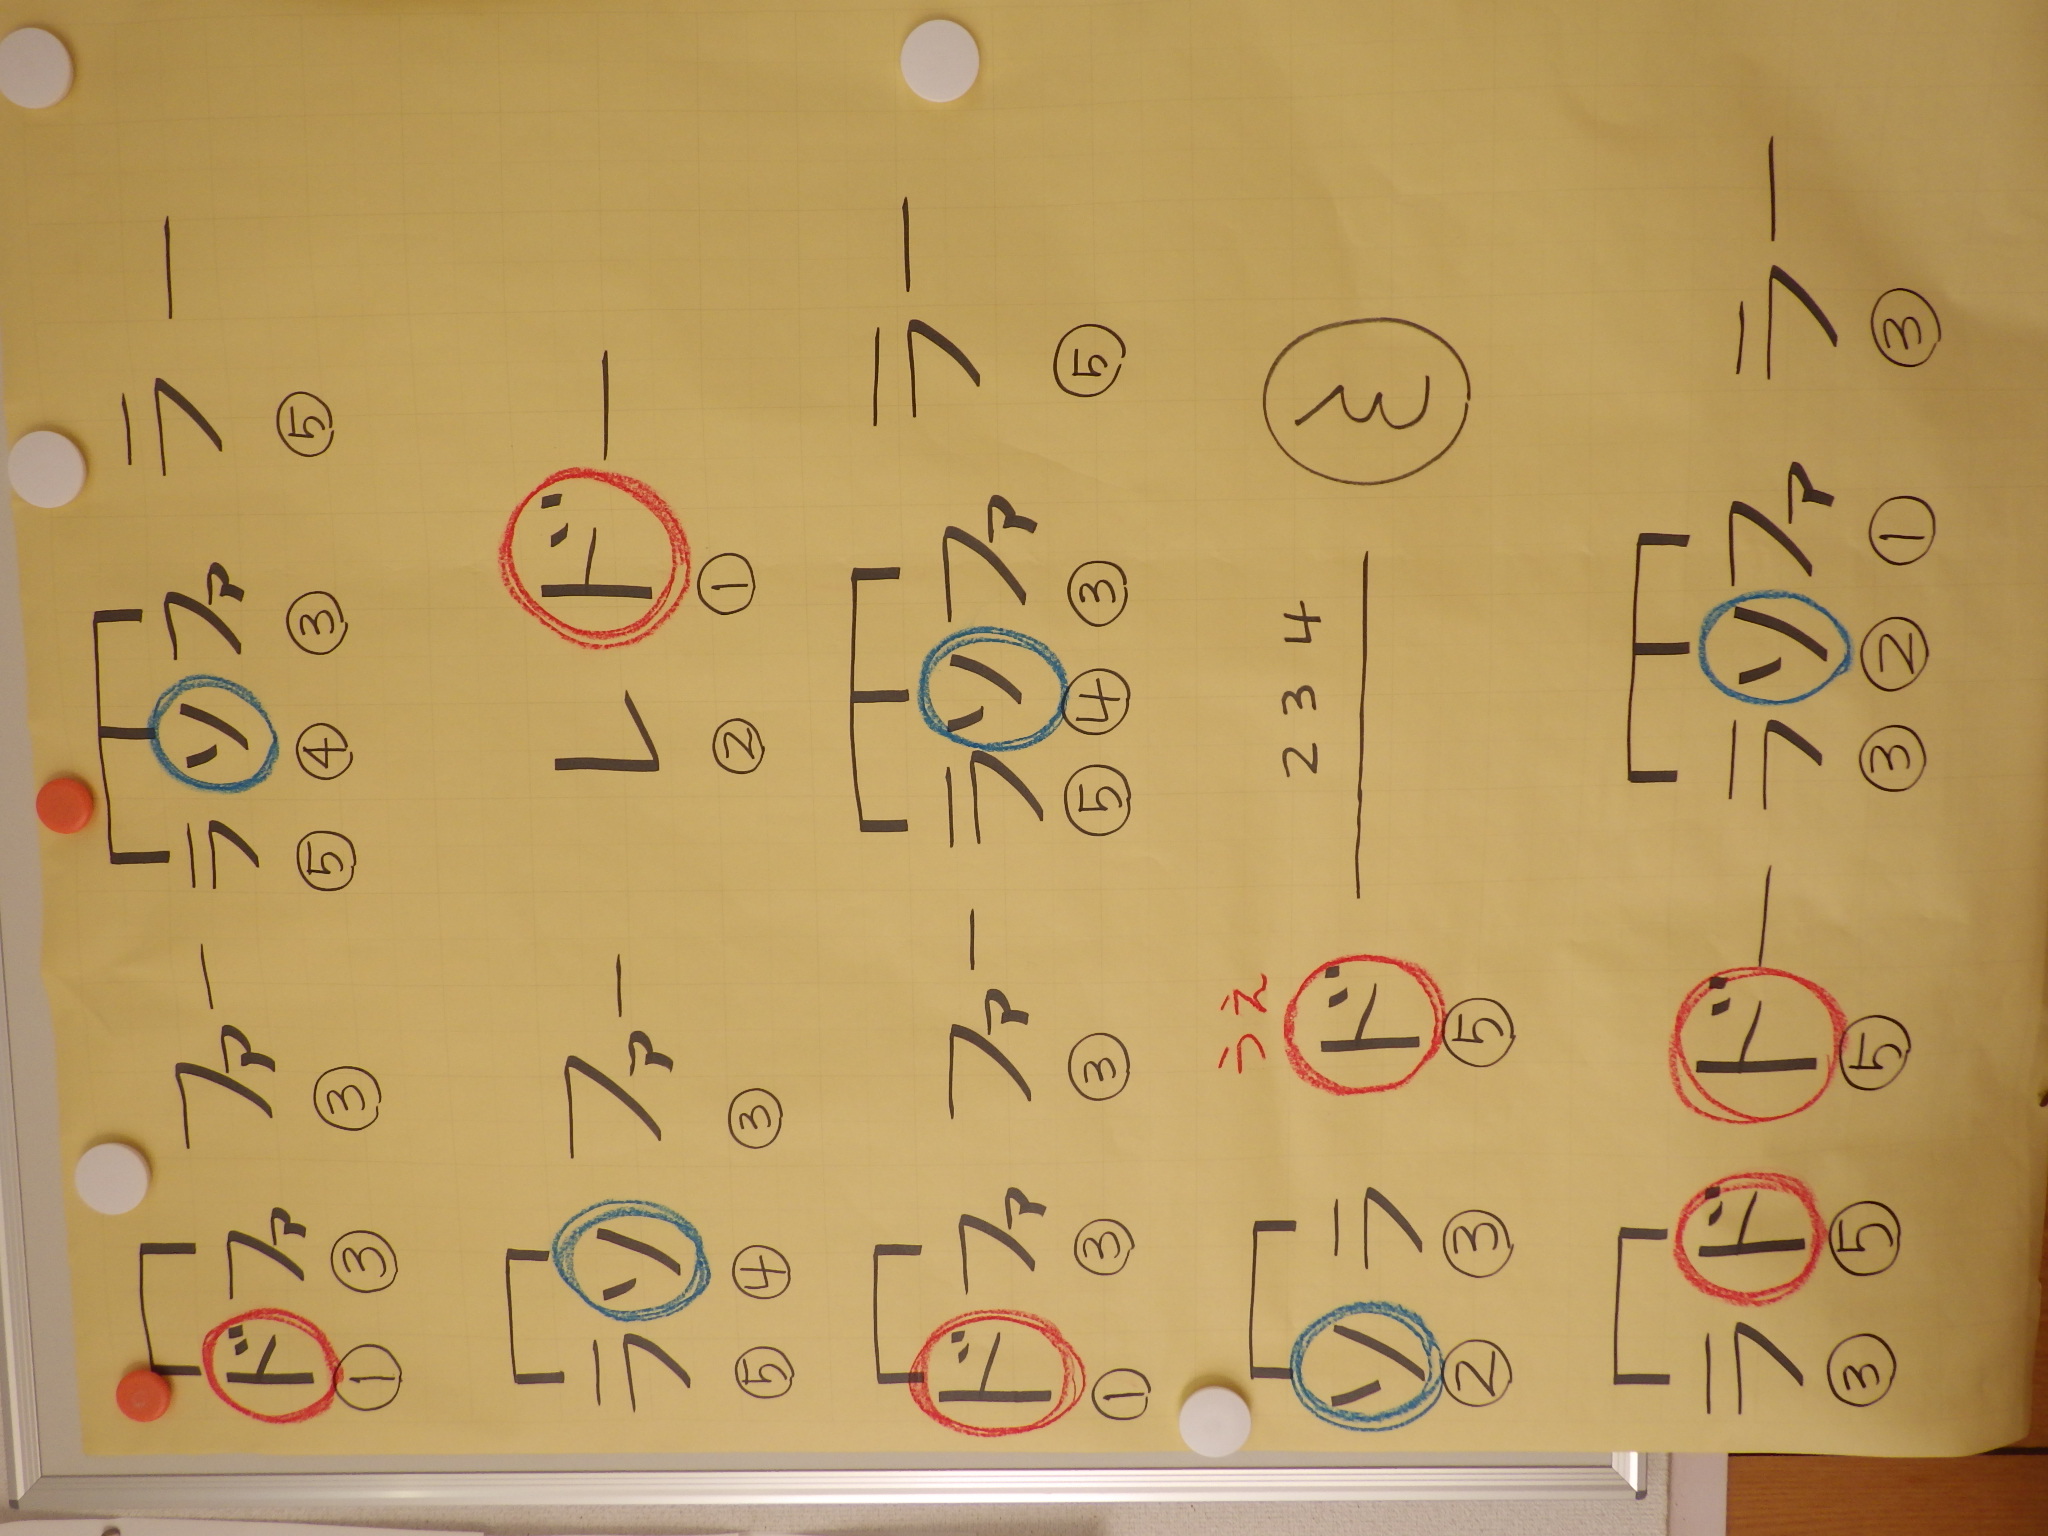 ド ファ ファ ー ラ ソ ファ ラ ー
① ③ ③ ⑤ ④ ③ ⑤
ラ ソ ファ ー レ ド ー
⑤ ④ ③ ② ①
ド ファ ファ ー ラ ソ ファ ラ ー
① ③ ③ ⑤ ④ ③ ⑤
うえ 2 3 4
ソ ラ ド ー
② ③ ⑤
ラ ド ド ー ラ ソ ファ ラ ー
③ ⑤ ⑤ ③ ② ① ③